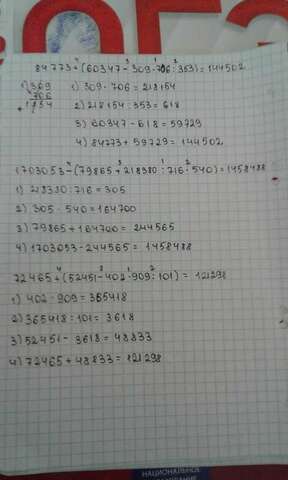 84773+(60347-309·706:353)=144502
309
706
+1854
1) 309·706=218154
2) 218154:353=618
3) 60347-618=59729
4) 84773+59729=144502
1703053-(79865+218380:716·540)=1458488
1) 218380:716=305
2) 305·540=164700
3) 79865+164700=244565
4) 1703053-244565=1458488
72465+(52451-402·909:101)=121298
1) 402·909=365418
2) 365418:101=3618
3) 52451-3618=48833
4) 72465+48833=121298
НАЦИОНАЛЬНОЕ